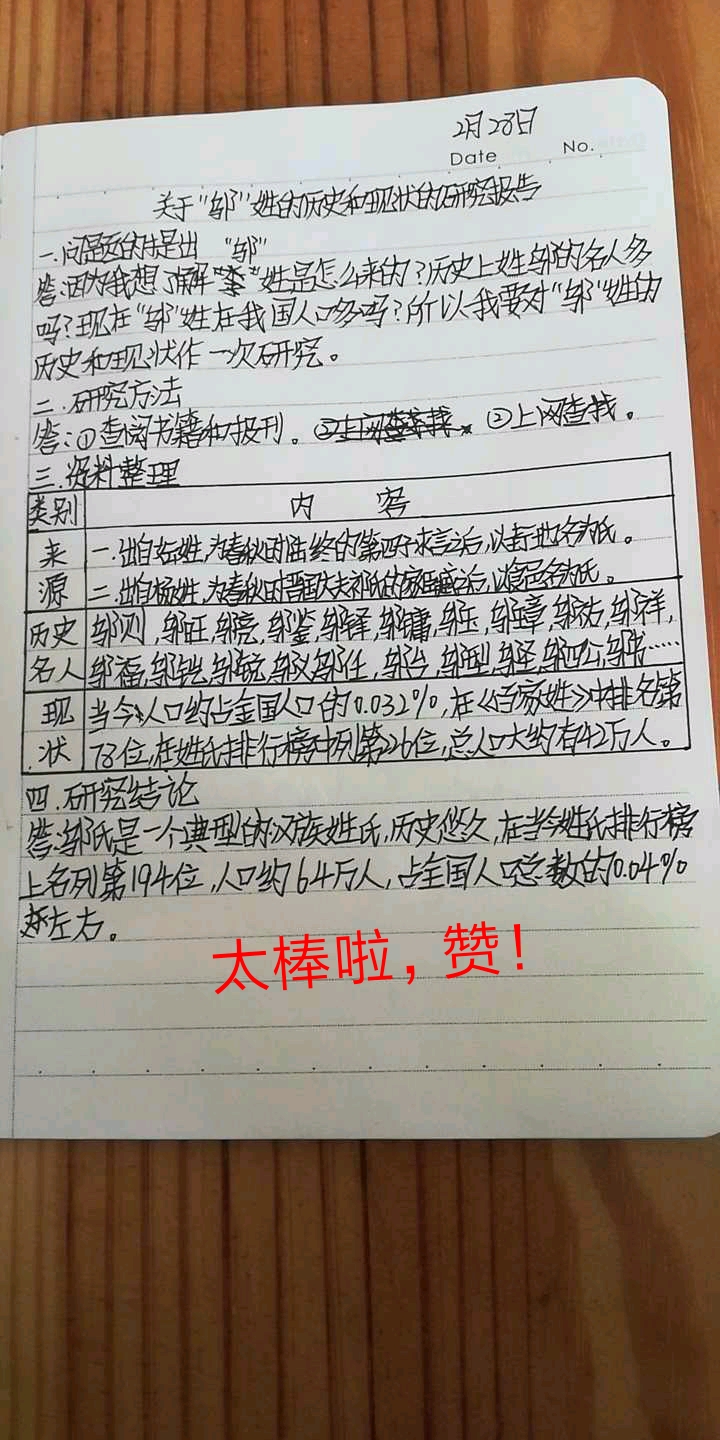 2月28日
Date No.
关于“邬”姓的历史和现状的研究报告
一.问题的提出 “邬”
答:因为我想了解“李”姓是怎么来的?历史上姓邬的名人多
吗?现在“邬”姓在我国人口多吗?所以我要对“邬”姓的
历史和现状作一次研究。
二.研究方法
答:①查阅书籍和报刊。②上网查找。②上网查找。
三.资料整理
类别 内 容
来 一.出自妘姓,为春秋时陆终的第四子求言之后,以封地名为氏。
源 二.出自杨姓,为春秋时晋国大夫祁氏的家臣臧之后,以食邑名为氏。
历史 邬则,邬旺,邬亮,邬鉴,邬铎,邬镛,邬岳,邬璋,邬祐,邬祥,
名人 邬福,邬铠,邬毓,邬汉,邬仕,邬台,邬型,邬圣,邬四公,邬……
现 当今人口约占全国人口的0.032%,在《百家姓》中排名第
状 78位,在姓氏排行榜中列第226位,总人口大约有42万人。
四.研究结论
答:邬氏是一个典型的汉族姓氏,历史悠久,在当今姓氏排行榜
上名列第194位,人口约64万人,占全国人口总数的0.04%
左右。
太棒啦，赞！